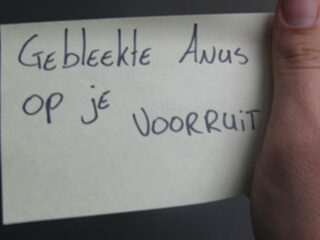 Gebleekte Anus
op je
voorruit